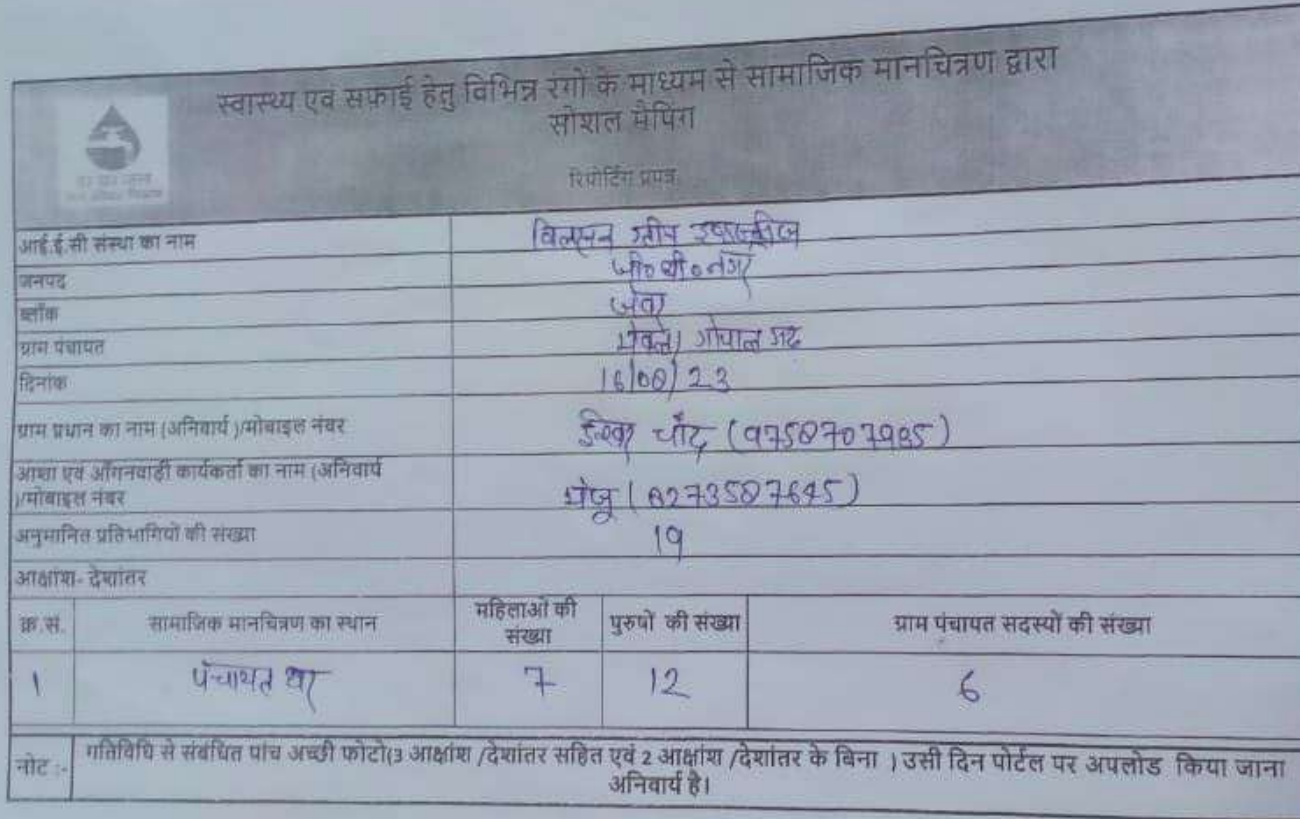 स्वास्थ्य एवं सफाई हेतु विभिन्न रंगो के माध्यम से सामाजिक मानचित्रण द्वारा
सोशल मैपिंग
रिपोर्टिंग प्रपत्र
आई.ई.सी संस्था का नाम
जनपद जी०बी०नगर
ब्लॉक जेवर
ग्राम पंचायत गोपाल गढ
दिनांक 16/08/23
ग्राम प्रधान का नाम (अनिवार्य )/मोबाइल नंबर चाँद (9758707985)
आशा एवं आँगनवाड़ी कार्यकर्ता का नाम (अनिवार्य
)/मोबाइल नंबर (8273587645)
अनुमानित प्रतिभागियों की संख्या 19
आक्षांश- देशांतर
क्र.सं. सामाजिक मानचित्रण का स्थान महिलाओं की संख्या पुरुषों की संख्या ग्राम पंचायत सदस्यों की संख्या
1 पंचायत घर 7 12 6
नोट :- गतिविधि से संबंधित पांच अच्छी फोटो(3 आक्षांश /देशांतर सहित एवं 2 आक्षांश /देशांतर के बिना ) उसी दिन पोर्टल पर अपलोड किया जाना
अनिवार्य है।